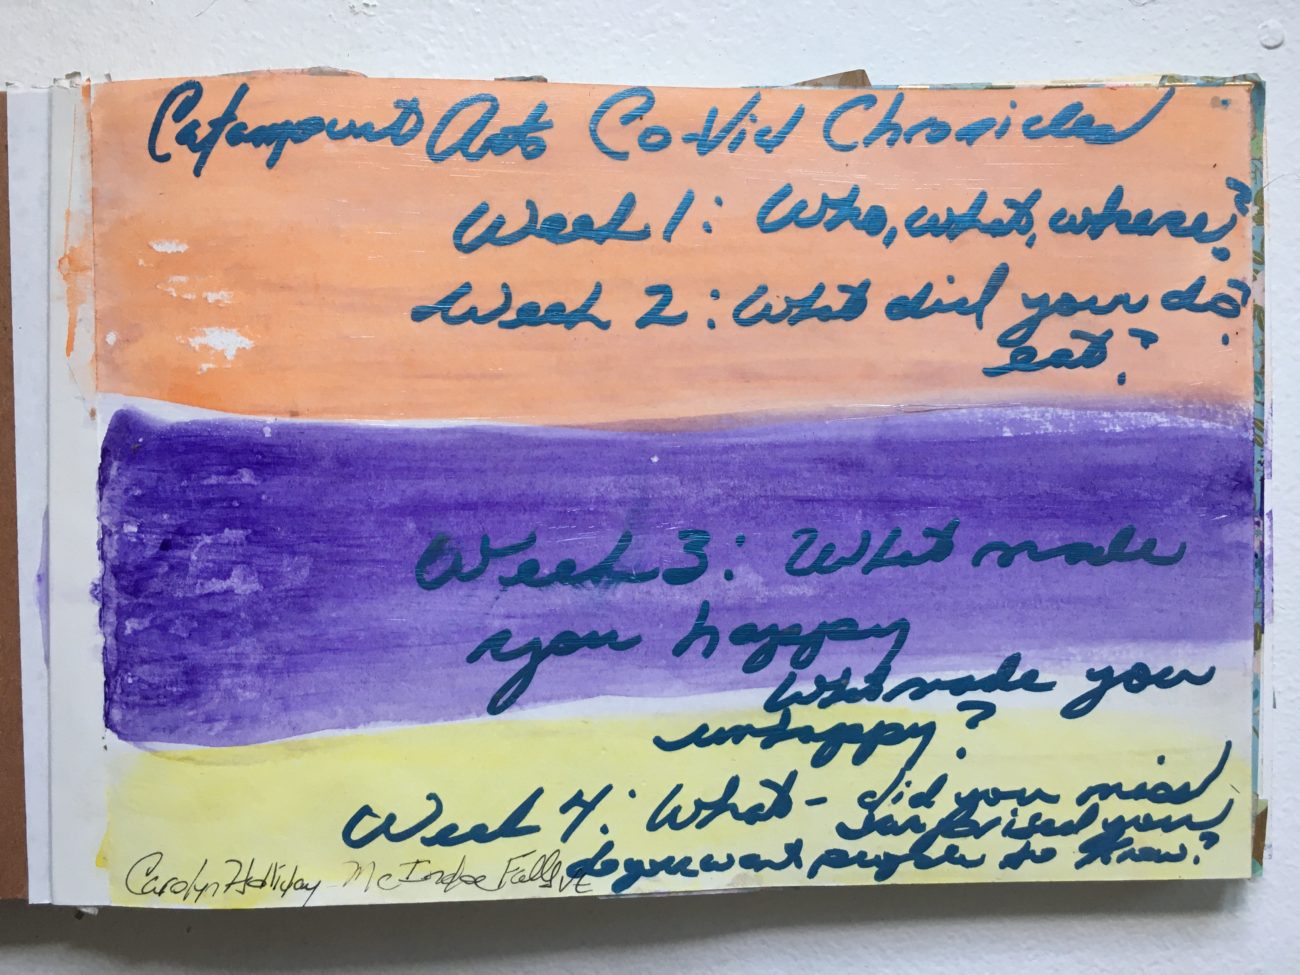 Catamount Arts Co-Vid Chronicles
Week 1: Who, what, where?
Week 2: What did you do?
eat?
Week 3: What made
you happy
What made you
unhappy?
Week 4: What - did you miss
surprised you
do you want people to know?
Carolyn Holliday McIndoe Falls VT